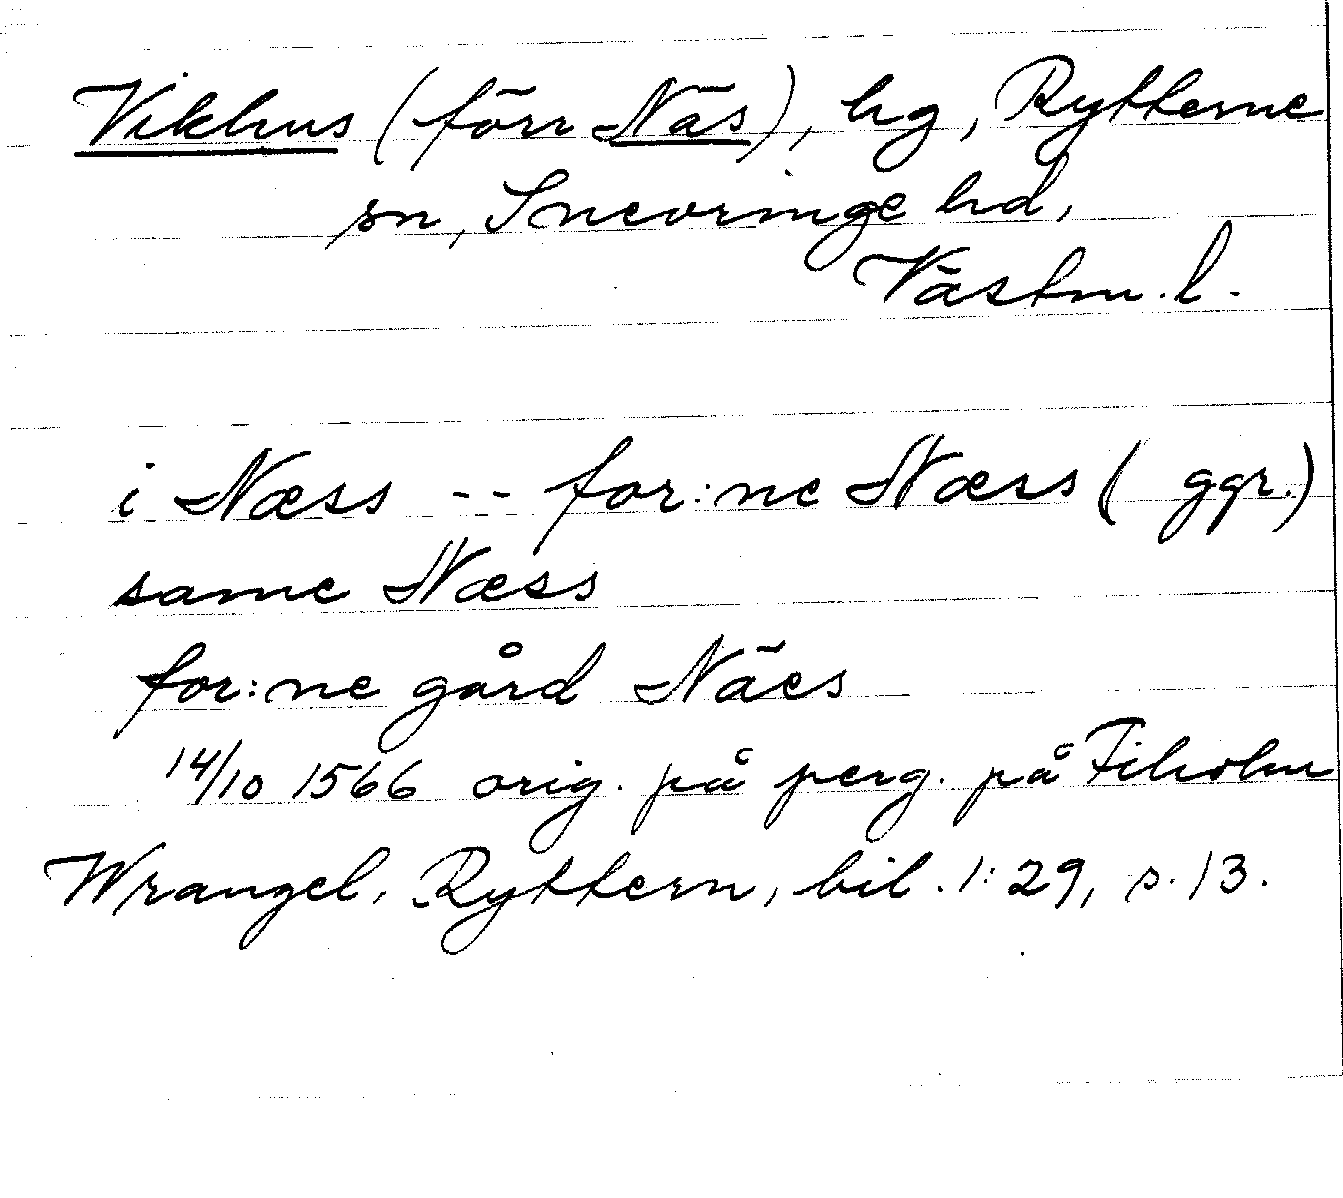 Vikhus (förr Näs), hg, Rytterne
sn, Snevringe hd,
Västm. l.
i Næss -- for:ne Næss ( ggr.)
same Næss
for:ne gård Näes
14/10 1566 orig. på perg. på Fiholm
Wrangel, Ryttern, bil. 1:29, s. 13.